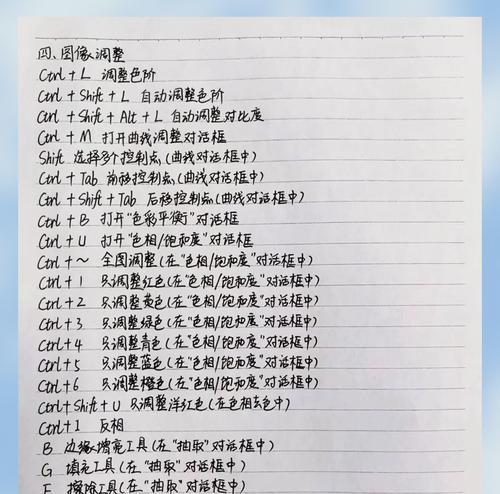 四、图像调整
Ctrl + L 调整色阶
Ctrl + Shift + L 自动调整色阶
Ctrl + Shift + Alt + L 自动调整对比度
Ctrl + M 打开曲线调整对话框
Shift 选择多个控制点(曲线对话框中)
Ctrl + Tab 前移控制点(曲线对话框中)
Ctrl + Shift + Tab 后移控制点(曲线对话框中)
Ctrl + B 打开"色彩平衡"对话框
Ctrl + U 打开"色相/饱和度"对话框
Ctrl + ~ 全图调整(在"色相/饱和度"对话框中)
Ctrl + 1 只调整红色(在"色相/饱和度"对话框中)
Ctrl + 2 只调整黄色(在"色相/饱和度"对话框中)
Ctrl + 3 只调整绿色(在"色相/饱和度"对话框中)
Ctrl + 4 只调整青色(在"色相/饱和度"对话框中)
Ctrl + 5 只调整蓝色(在"色相/饱和度"对话框中)
Ctrl + 6 只调整橙色(在"色相/饱和度"对话框中)
Ctrl + Shift + U 只调整洋红色(在色相去色中)
Ctrl + I 反相
B 边缘增亮工具(在"抽取"对话框中)
G 填充工具(在"抽取"对话框中)
擦除工具(在"抽取"对话框中)